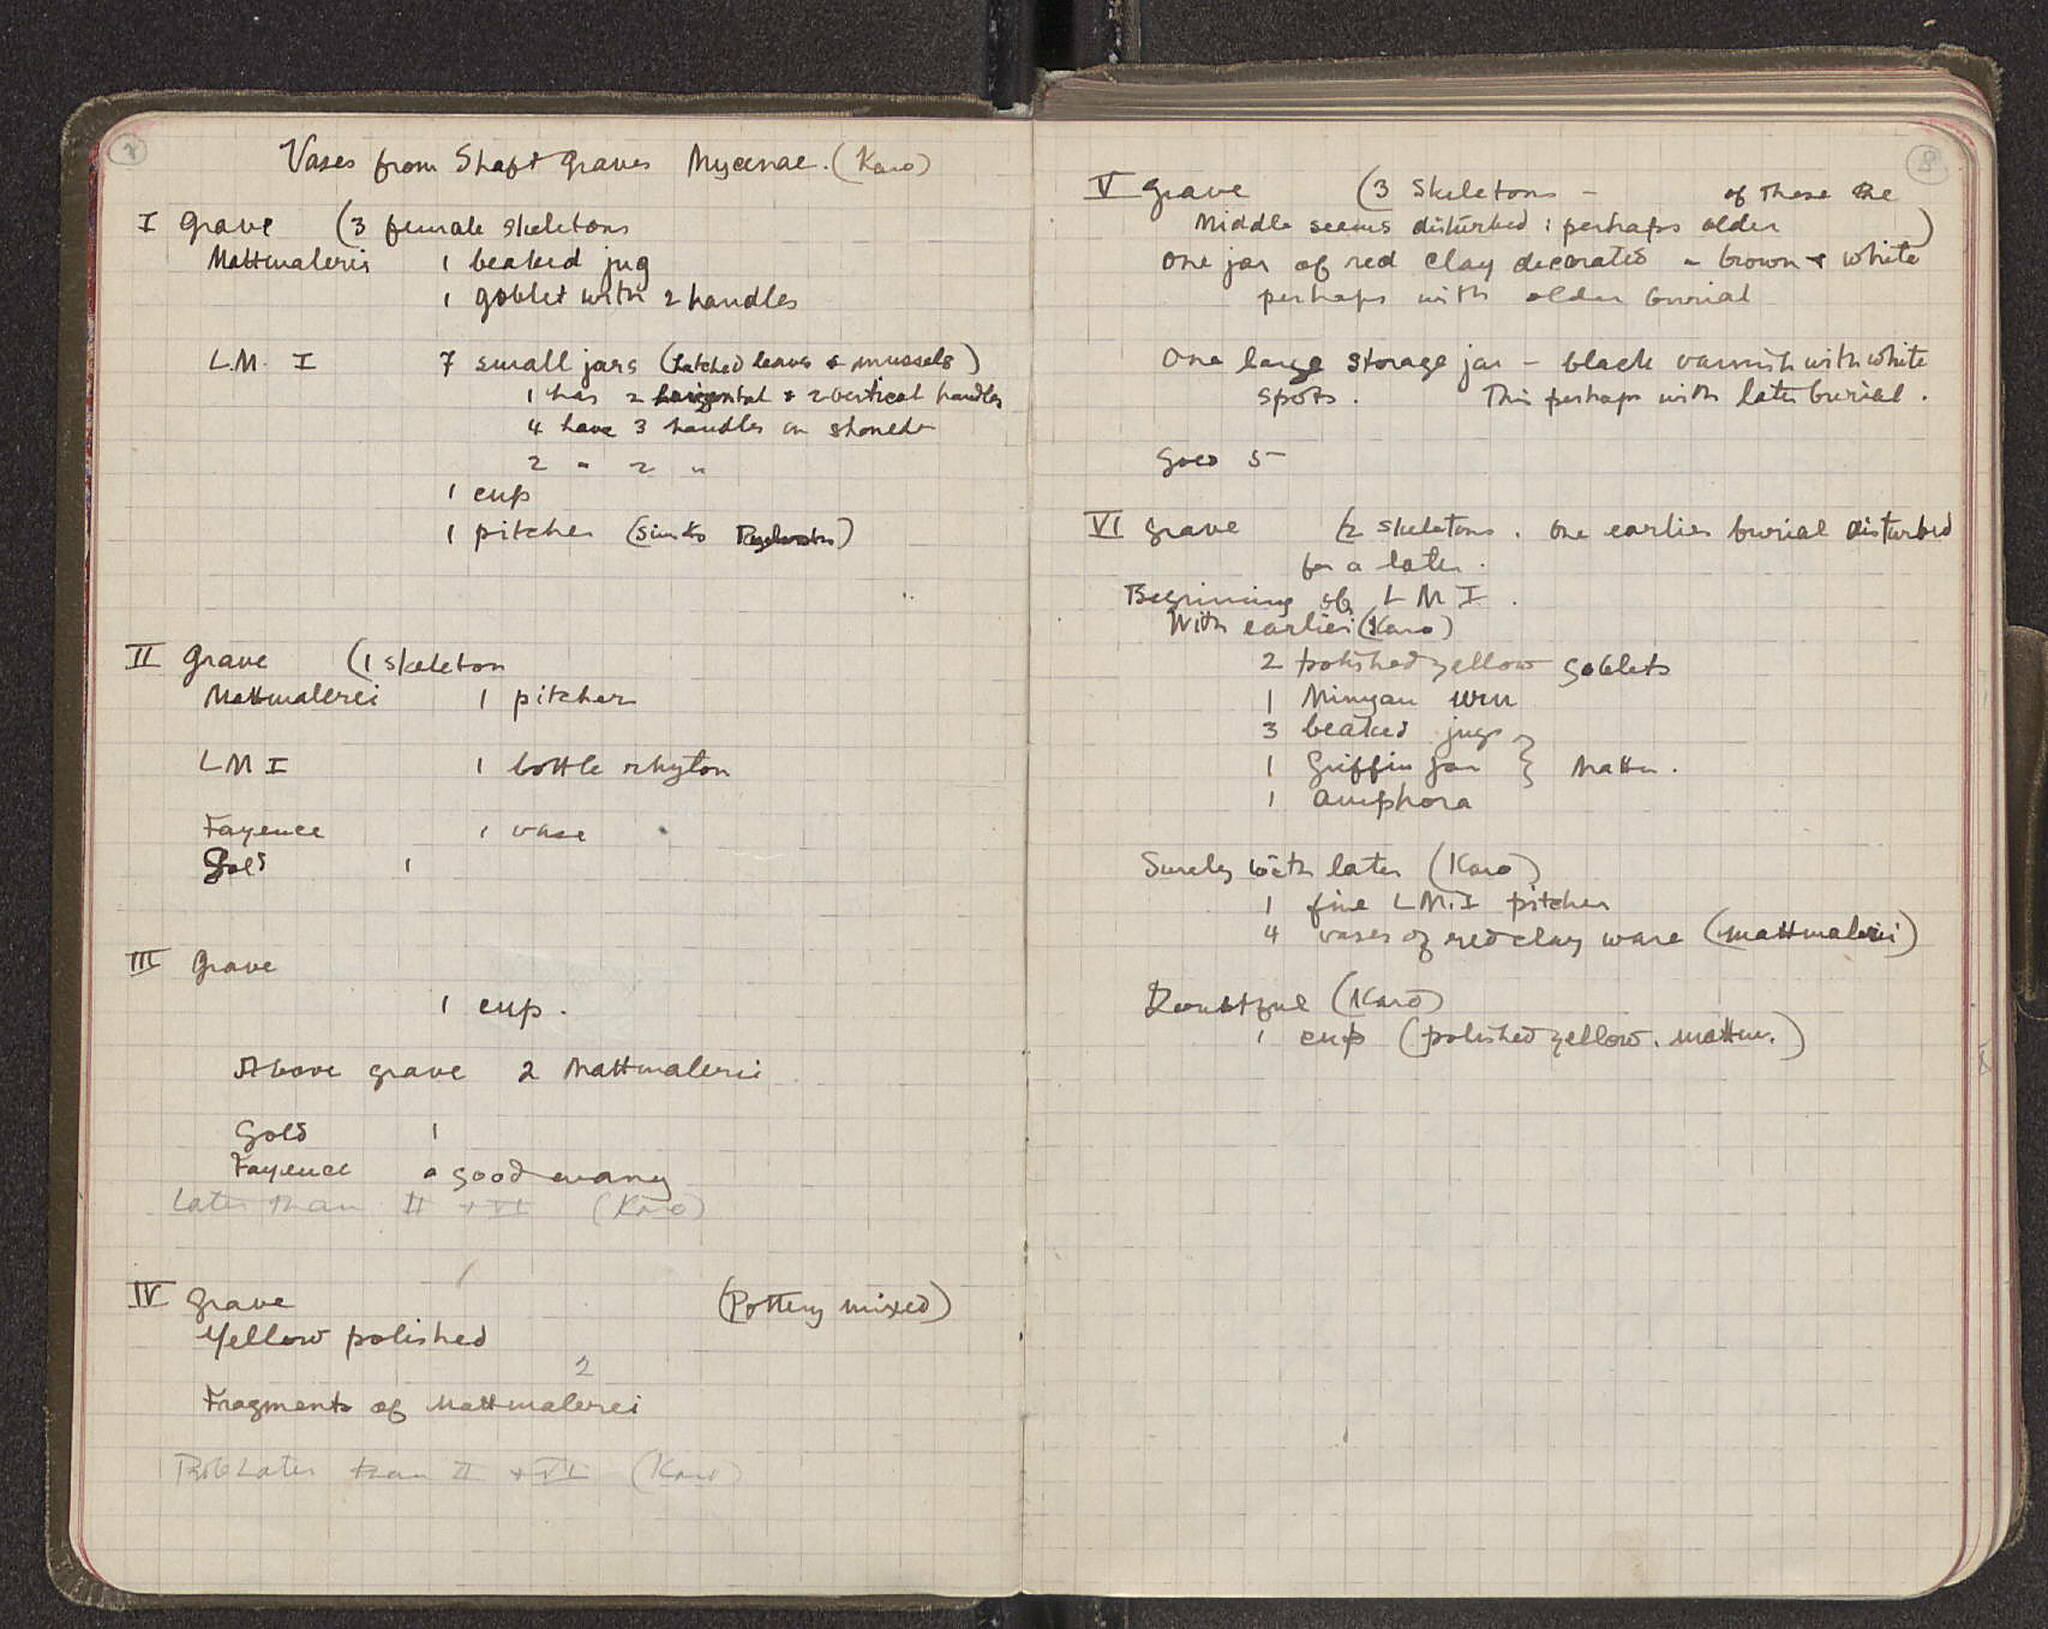 7
Vases from Shaft Graves Mycenae. (Karo)
I Grave (3 female skeletons
Mattmalerei 1 beaked jug
1 goblet with 2 handles
L.M. I 7 small jars (hatched leaves & mussels)
1 has 2 horizontal & 2 vertical handles
4 have 3 handles on shoulder
2 " 2 "
1 cup
1 pitcher
II Grave (1 skeleton
Mattmalerei 1 pitcher
L M I 1 bottle rhyton
Fayence 1 vase
Gold 1
III Grave
1 cup.
Above grave 2 Mattmalerei
Gold 1
Fayence a good many
Later than II + VI (Karo)
IV Grave (Pottery mixed)
Yellow polished
2
Fragments of Mattmalerei
Prob Later than II + VI (Karo)
8
V Grave (3 skeletons - of these the
Middle seems disturbed: perhaps older)
One jar of red clay decorated - brown & white
perhaps with older burial
One large storage jar - black varnish with white
spots. This perhaps with later burial.
Gold 5
VI Grave (2 skeletons. One earlier burial disturbed
for a later.
Beginning of L M I.
With earlier (Karo)
2 polished yellow goblets
1 Minyan urn
3 beaked jugs
1 Griffin jar } Mattm.
1 amphora
Surely with later (Karo)
1 fine L M. I pitcher
4 vases of red clay ware (mattmalerei)
Doubtful (Karo)
1 cup (polished yellow. mattm.)